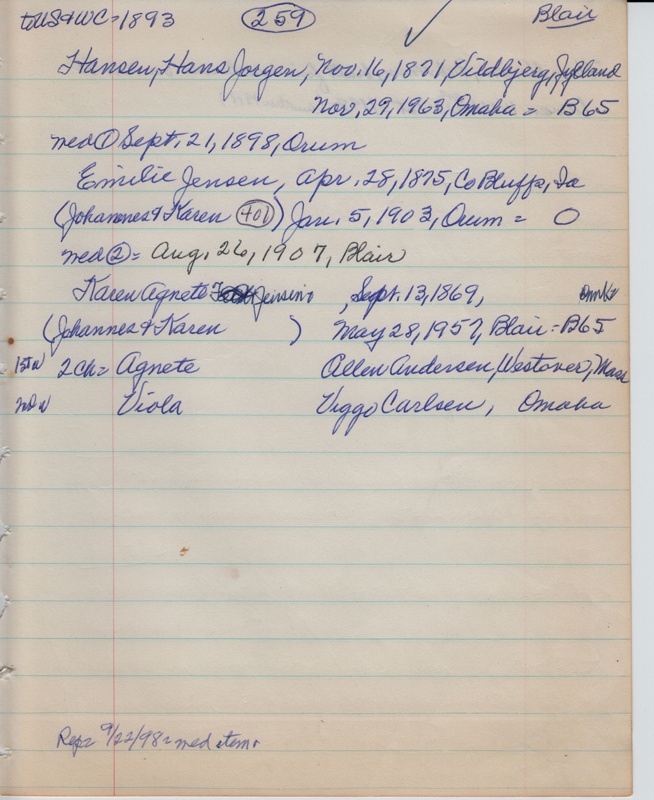 to US & WC = 1893 259 Blair
Hansen, Hans Jorgen, Nov. 16, 1871, Vildbjerg, Jylland
Nov, 29, 1963, Omaha = B65
med ① Sept. 21, 1898, Orum
Emilie Jensen, Apr. 28, 1875, Co Bluffs, Ia
(Johannes & Karen 401) Jan. 5, 1903, Orum = O
med ② = Aug. 26, 1907, Blair
Karen Agnete Jensen , Sept. 13, 1869, Dmk
(Johannes & Karen ) May 28, 1957, Blair = B65
1st w 2 ch = Agnete Allen Andersen, Westover, Mass
2nd w Viola Viggo Carlsen, Omaha
Rep = 9/22/98 = med item